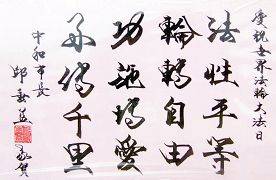 慶祝世界法輪大法日
法性平等
輪轉自由
功施瑪愛
弟傳千里
中和市長
邱垂益
敬賀